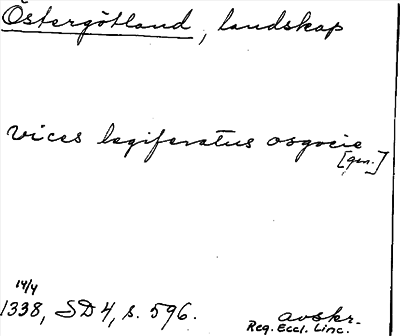 Östergötland, landskap
vices legiferatus osgocie
[gen.]
14/4
1338, SD 4, s. 596.
avskr.
Reg. Eccl. Linc.